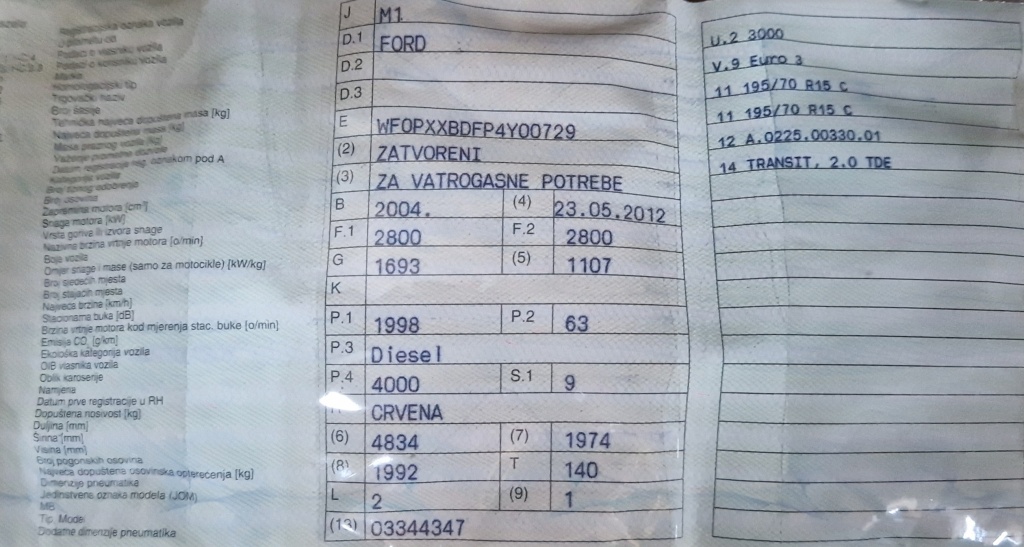 J M1
D.1 FORD
D.2
D.3
E WF0PXXBDFP4Y00729
(2) ZATVORENI
(3) ZA VATROGASNE POTREBE
B 2004. (4) 23.05.2012
F.1 2800 F.2 2800
G 1693 (5) 1107
K
P.1 1998 P.2 63
P.3 Diesel
P.4 4000 S.1 9
CRVENA
(6) 4834 (7) 1974
(8) 1992 T 140
L 2 (9) 1
(13) 03344347
U.2 3000
V.9 Euro 3
11 195/70 R15 C
11 195/70 R15 C
12 A.0225.00330.01
14 TRANSIT, 2.0 TDE
Registarska oznaka vozila
Podaci o vlasniku vozila
Podaci o korisniku vozila
Marka
Homologacijski tip
Trgovački naziv
Broj šasije
Tehnička najveća dopuštena masa [kg]
Najveća dopuštena masa [kg]
Masa praznog vozila [kg]
oznakom pod A
Broj osovina
Zapremina motora [cm³]
Snaga motora [kW]
Vrsta goriva ili izvora snage
Nazivna brzina vrtnje motora [o/min]
Boja vozila
Omjer snage i mase (samo za motocikle) [kW/kg]
Broj sjedećih mjesta
Broj stajaćih mjesta
Najveća brzina [km/h]
Stacionarna buka [dB]
Brzina vrtnje motora kod mjerenja stac. buke [o/min]
Emisija CO₂ [g/km]
Ekološka kategorija vozila
OIB vlasnika vozila
Oblik karoserije
Namjena
Datum prve registracije u RH
Dopuštena nosivost [kg]
Duljina [mm]
Širina [mm]
Visina [mm]
Broj pogonskih osovina
Najveća dopuštena osovinska opterećenja [kg]
Dimenzije pneumatika
Jedinstvena oznaka modela (JOM)
MB
Tip, Model
Dodatne dimenzije pneumatika